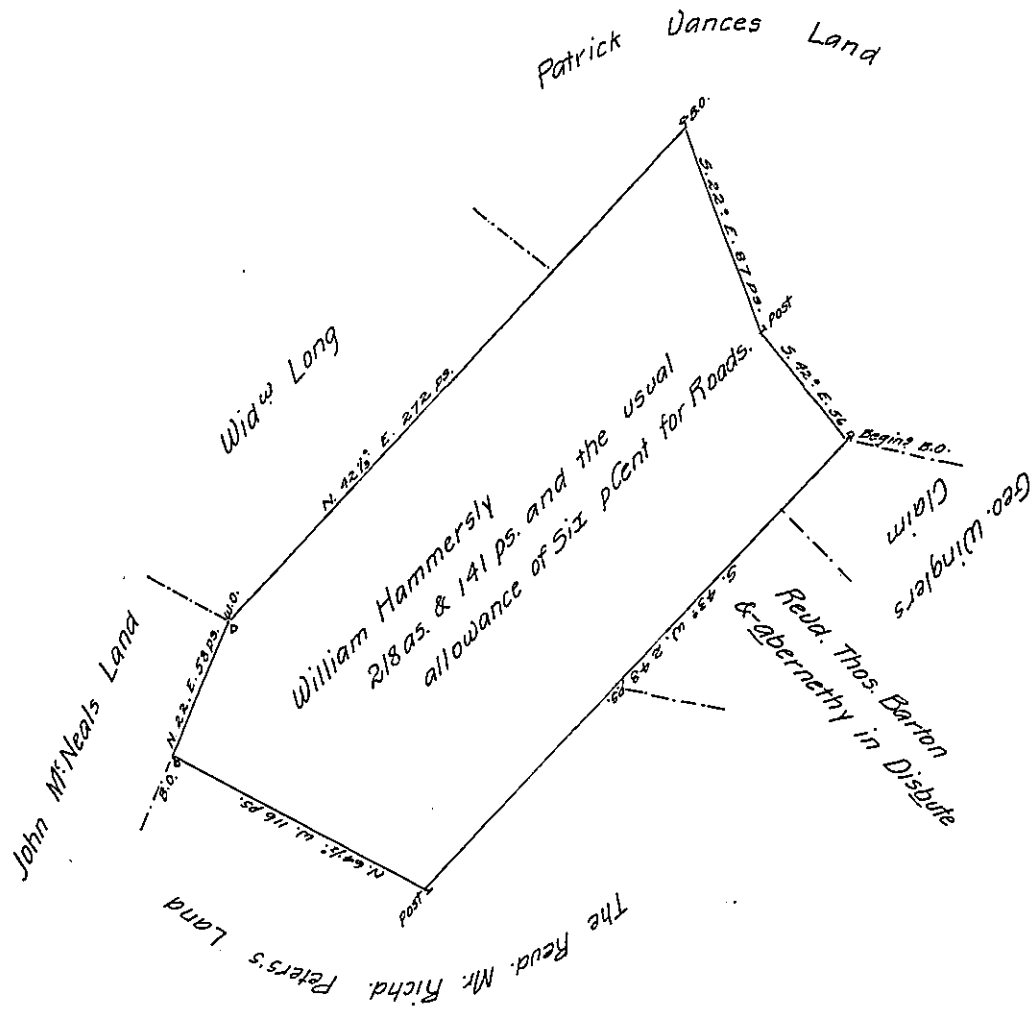 Patrick Vances Land
B.O.
S. 22° E. 87 ps.
Post
S. 42° E. 56
Begins B.O.
Geo. Winglers
Claim
Widw Long
N. 42½° E. 272 ps.
William Hammersly
218 as. & 141 ps. and the usual
allowance of Six pCent for Roads.
S. 43° W. 248 ps.
Revd. Thos. Barton
& abernethy in Disbute
W.O.
N 22. E. 58 ps.
John McNeals Land
B.O.
N. 64½° W. 116 ps.
Post
The Revd. Mr. Richd. Peters's Land